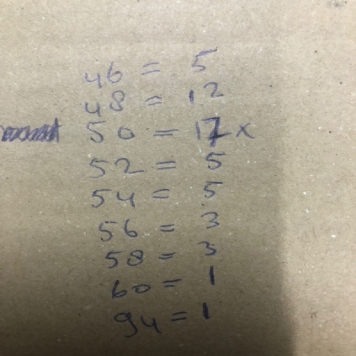 46 = 5
48 = 12
50 = 17 x
52 = 5
54 = 5
56 = 3
58 = 3
60 = 1
94 = 1